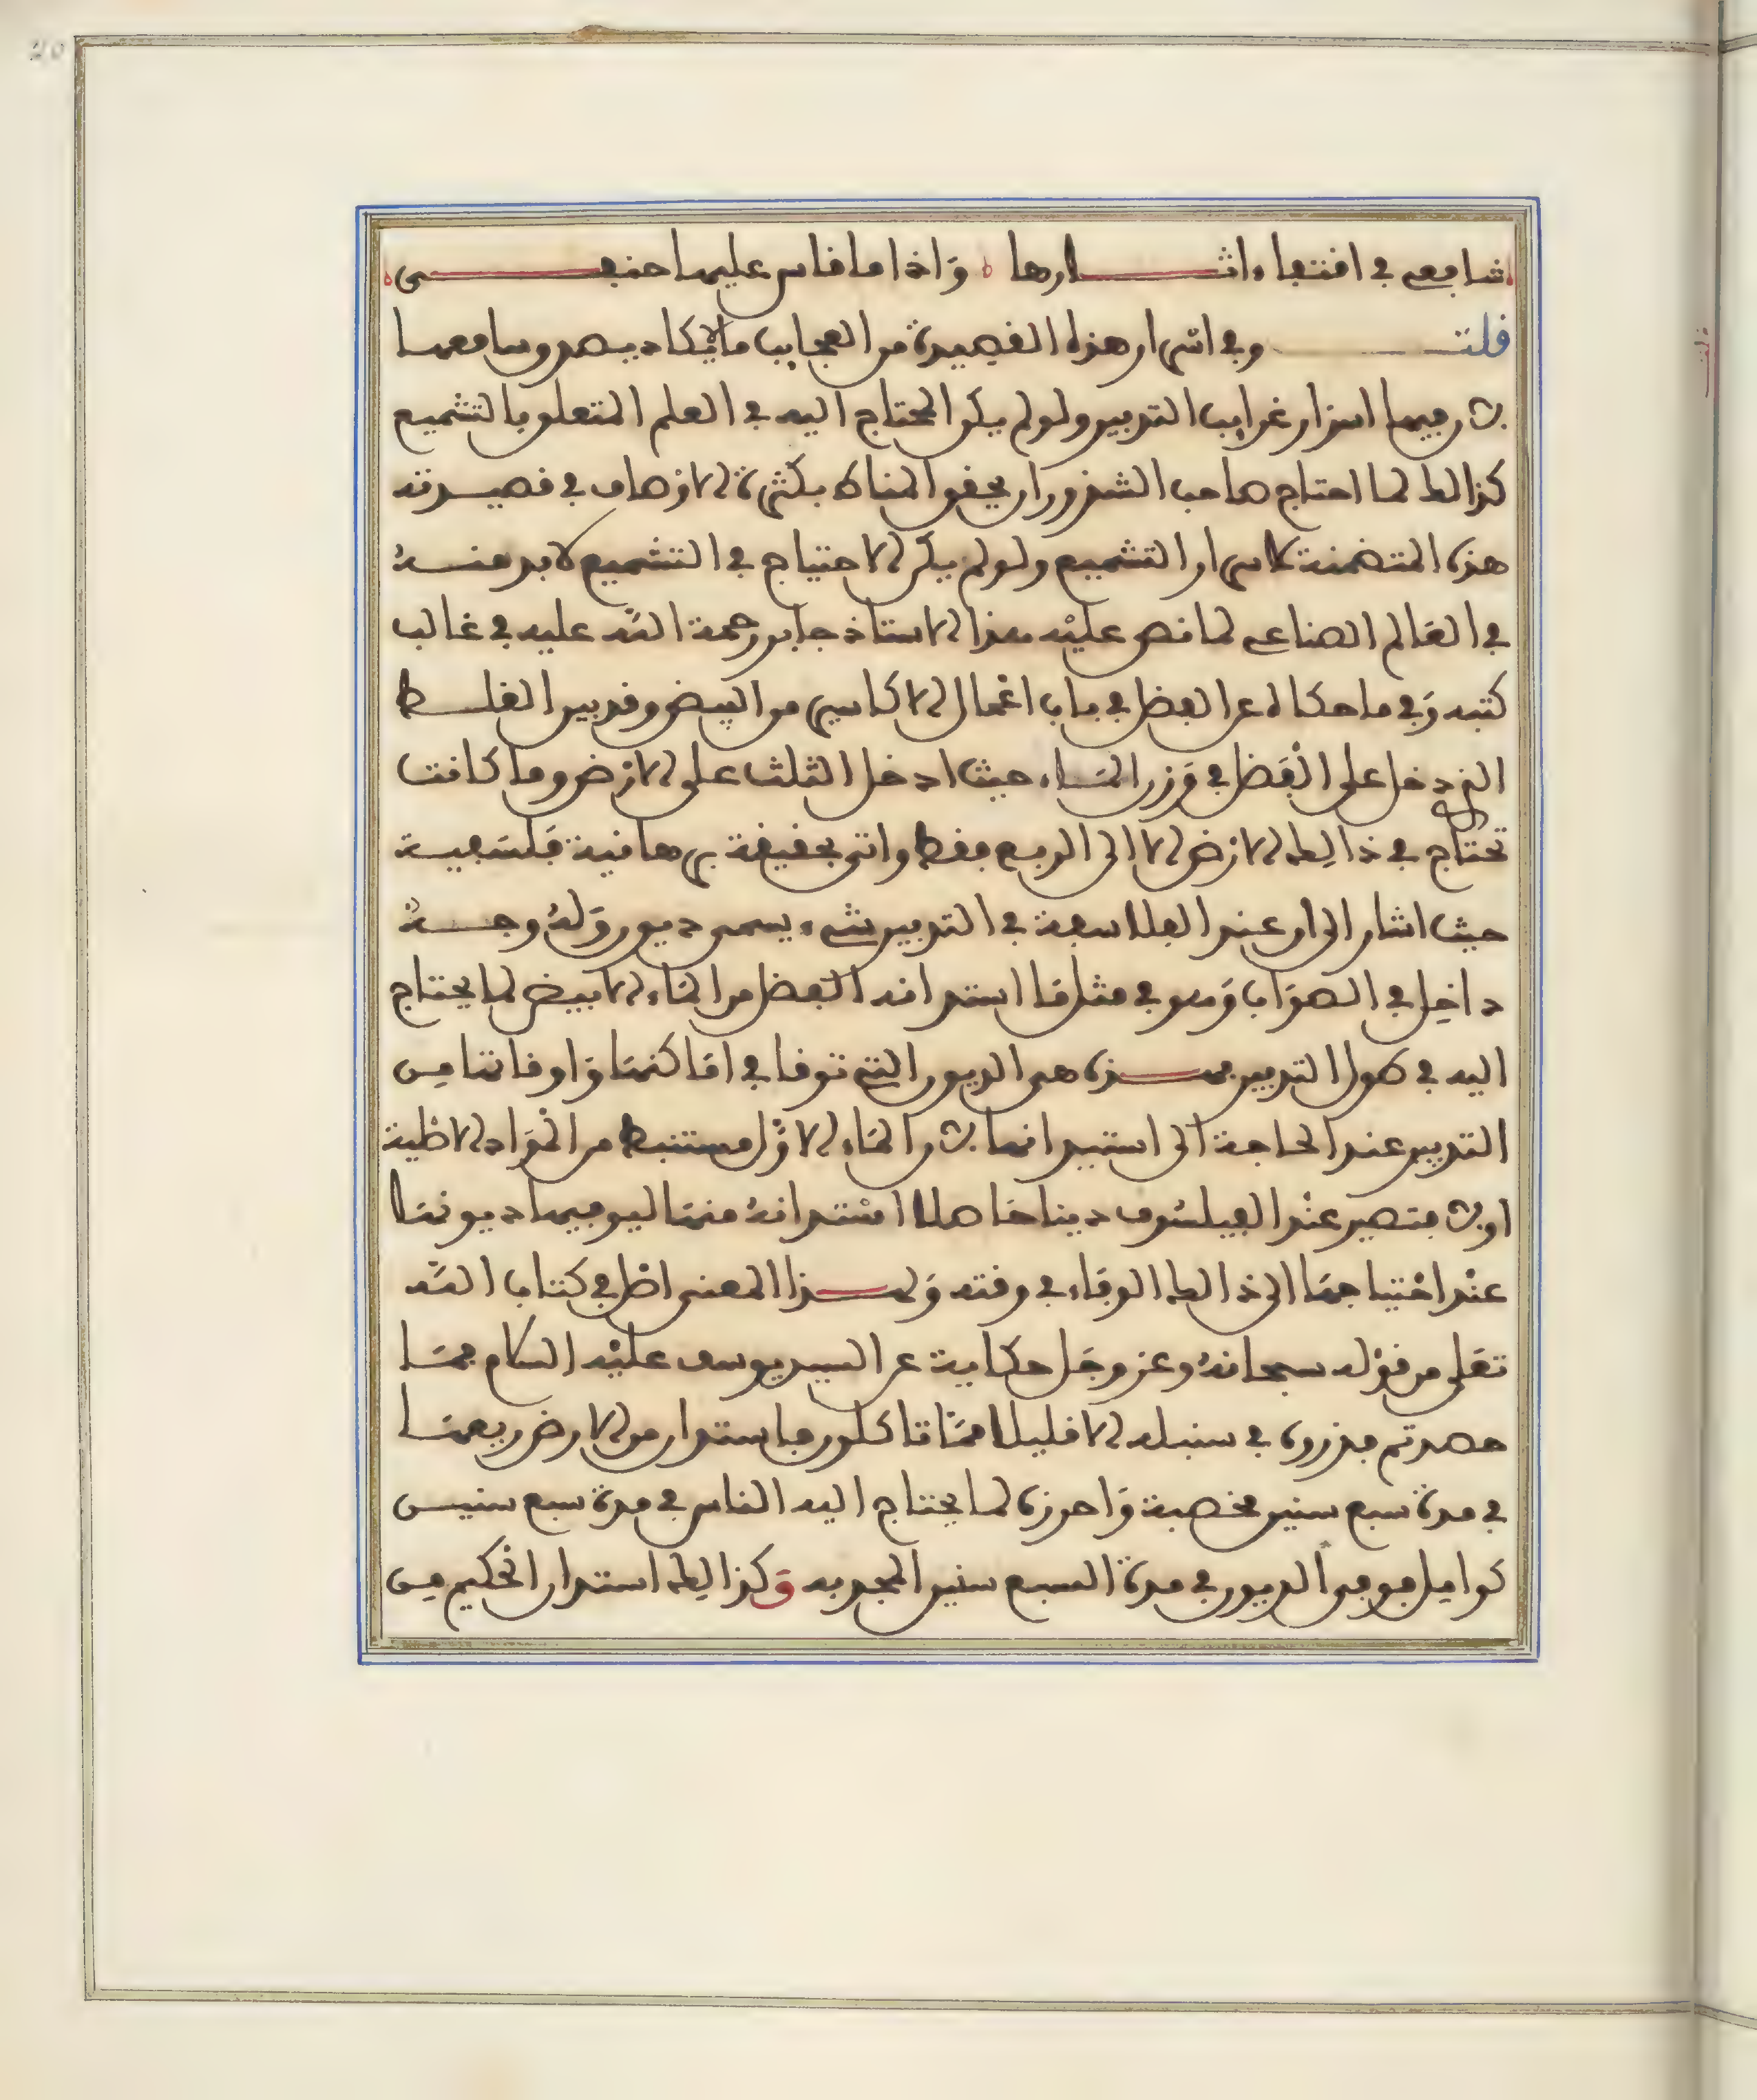 شافعي في اقتفاء اثارها وَاذا ما قاس عليها حنفي
قلت وفي اسرار هذه القصيدة من العجايب ما لا يكاد يصدر وسامعها
لان فيها اسرار غرايب التدبير ولو لم يكن المحتاج اليه في العلم المتعلق بالتشميع
كذالك لما احتاج صاحب الشذور ان يحقق المناط بكثرة الاوصاف في قصيدته
هذه المتضمنة لاسرار التشميع ولو لم يكن الاحتياج في التشميع لابد منه
في العَالم الصناعي لما نص عليْه هذا الاستاذ جابر رحمة الله عليه في غالب
كتبه وَفي ما حكاه عن الفضل في باب اعْمال الاكاسير من البيض وتدبير الغلط
الذي دخل على الْفَضل في وَزن المَاء حيث ادخل الثلث على الارض وما كانت
تحتاج في ذالِك الارض الا الى الربع فقط واتى بحقيقة برهانية فلسَفية
حيث اشار الى ان عند الفلاسفة في التدبير شيء يسمى ديون وَلهُ وجه
داخِل في الصوَاب وَهو في مثل مَا استدانه الفضل من المَاء الابيض لما يحتاج
اليه في طول التدبير فهذه هي الديون التي توفا في امَاكنهَا وَاوقاتها مِن
التدبير عند الحاجة الى استيدانها لان المَاء الاوّل مستنبط من الموَاد الاصْلية
او لا فتصير عنْد الفيلسُوف دينا حَاصلا اسْتدانهُ منهَا ليوفيها ديونهَا
عنْد احْتياجهَا الى ذالك الوفَاء في وقته وَلهذا المعنى اصْل في كتاب اللّه
تعَلى من قوْله سبحانهُ وعز وجَل حكاية عن السيد يوسف عليْه السلام فمَا
حصدتم فذروه في سنبله الا قليلا ممَّا تاكلون فاستدان من الارض ريعهَا
في مدة سبع سنين مخصبة وَاحرزه لما يحتاج اليه الناس في مدة سبع سنيـن
كوامِل فوفى الديون في مدة السبع سنين المجدبه وَكذالِك استدان الحكيم مِن